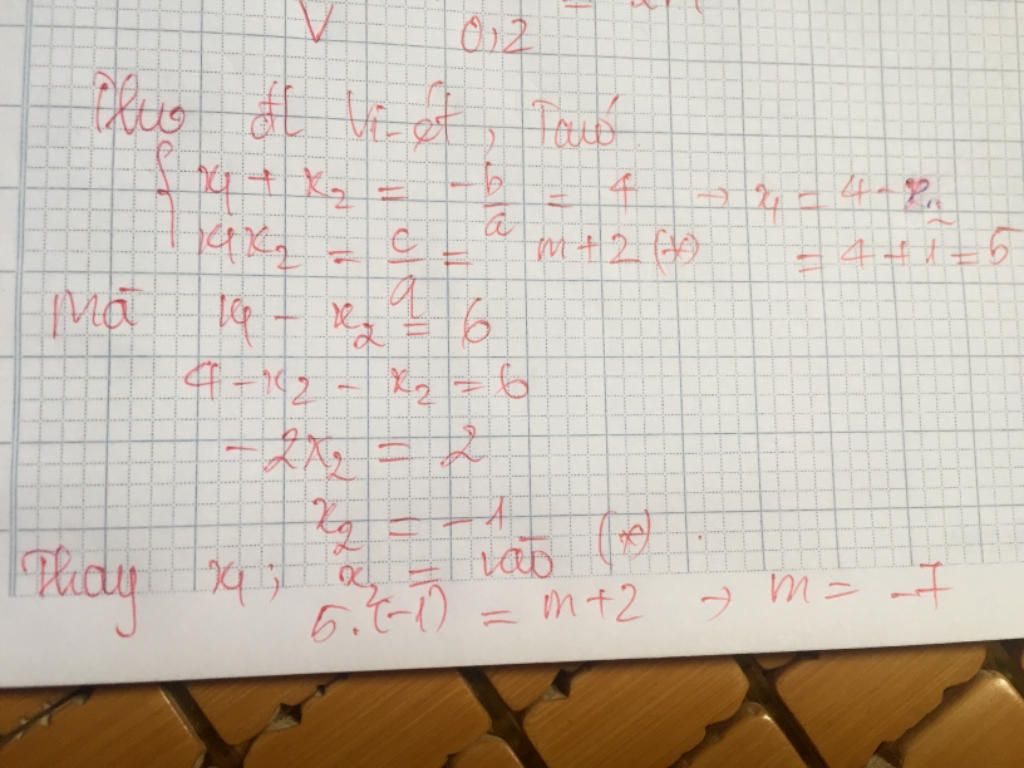 V 0,2 =
Theo đl Vi-ét, Ta có
{ x₁ + x₂ = -b/a = 4 → x₁ = 4 - x₂
x₁x₂ = c/a = m+2 (*) = 4 + 1 = 5
Mà x₁ - x₂ = 6
4 - x₂ - x₂ = 6
-2x₂ = 2
x₂ = -1
Thay x₁; x₂ = vào (*)
5.(-1) = m+2 → m = -7